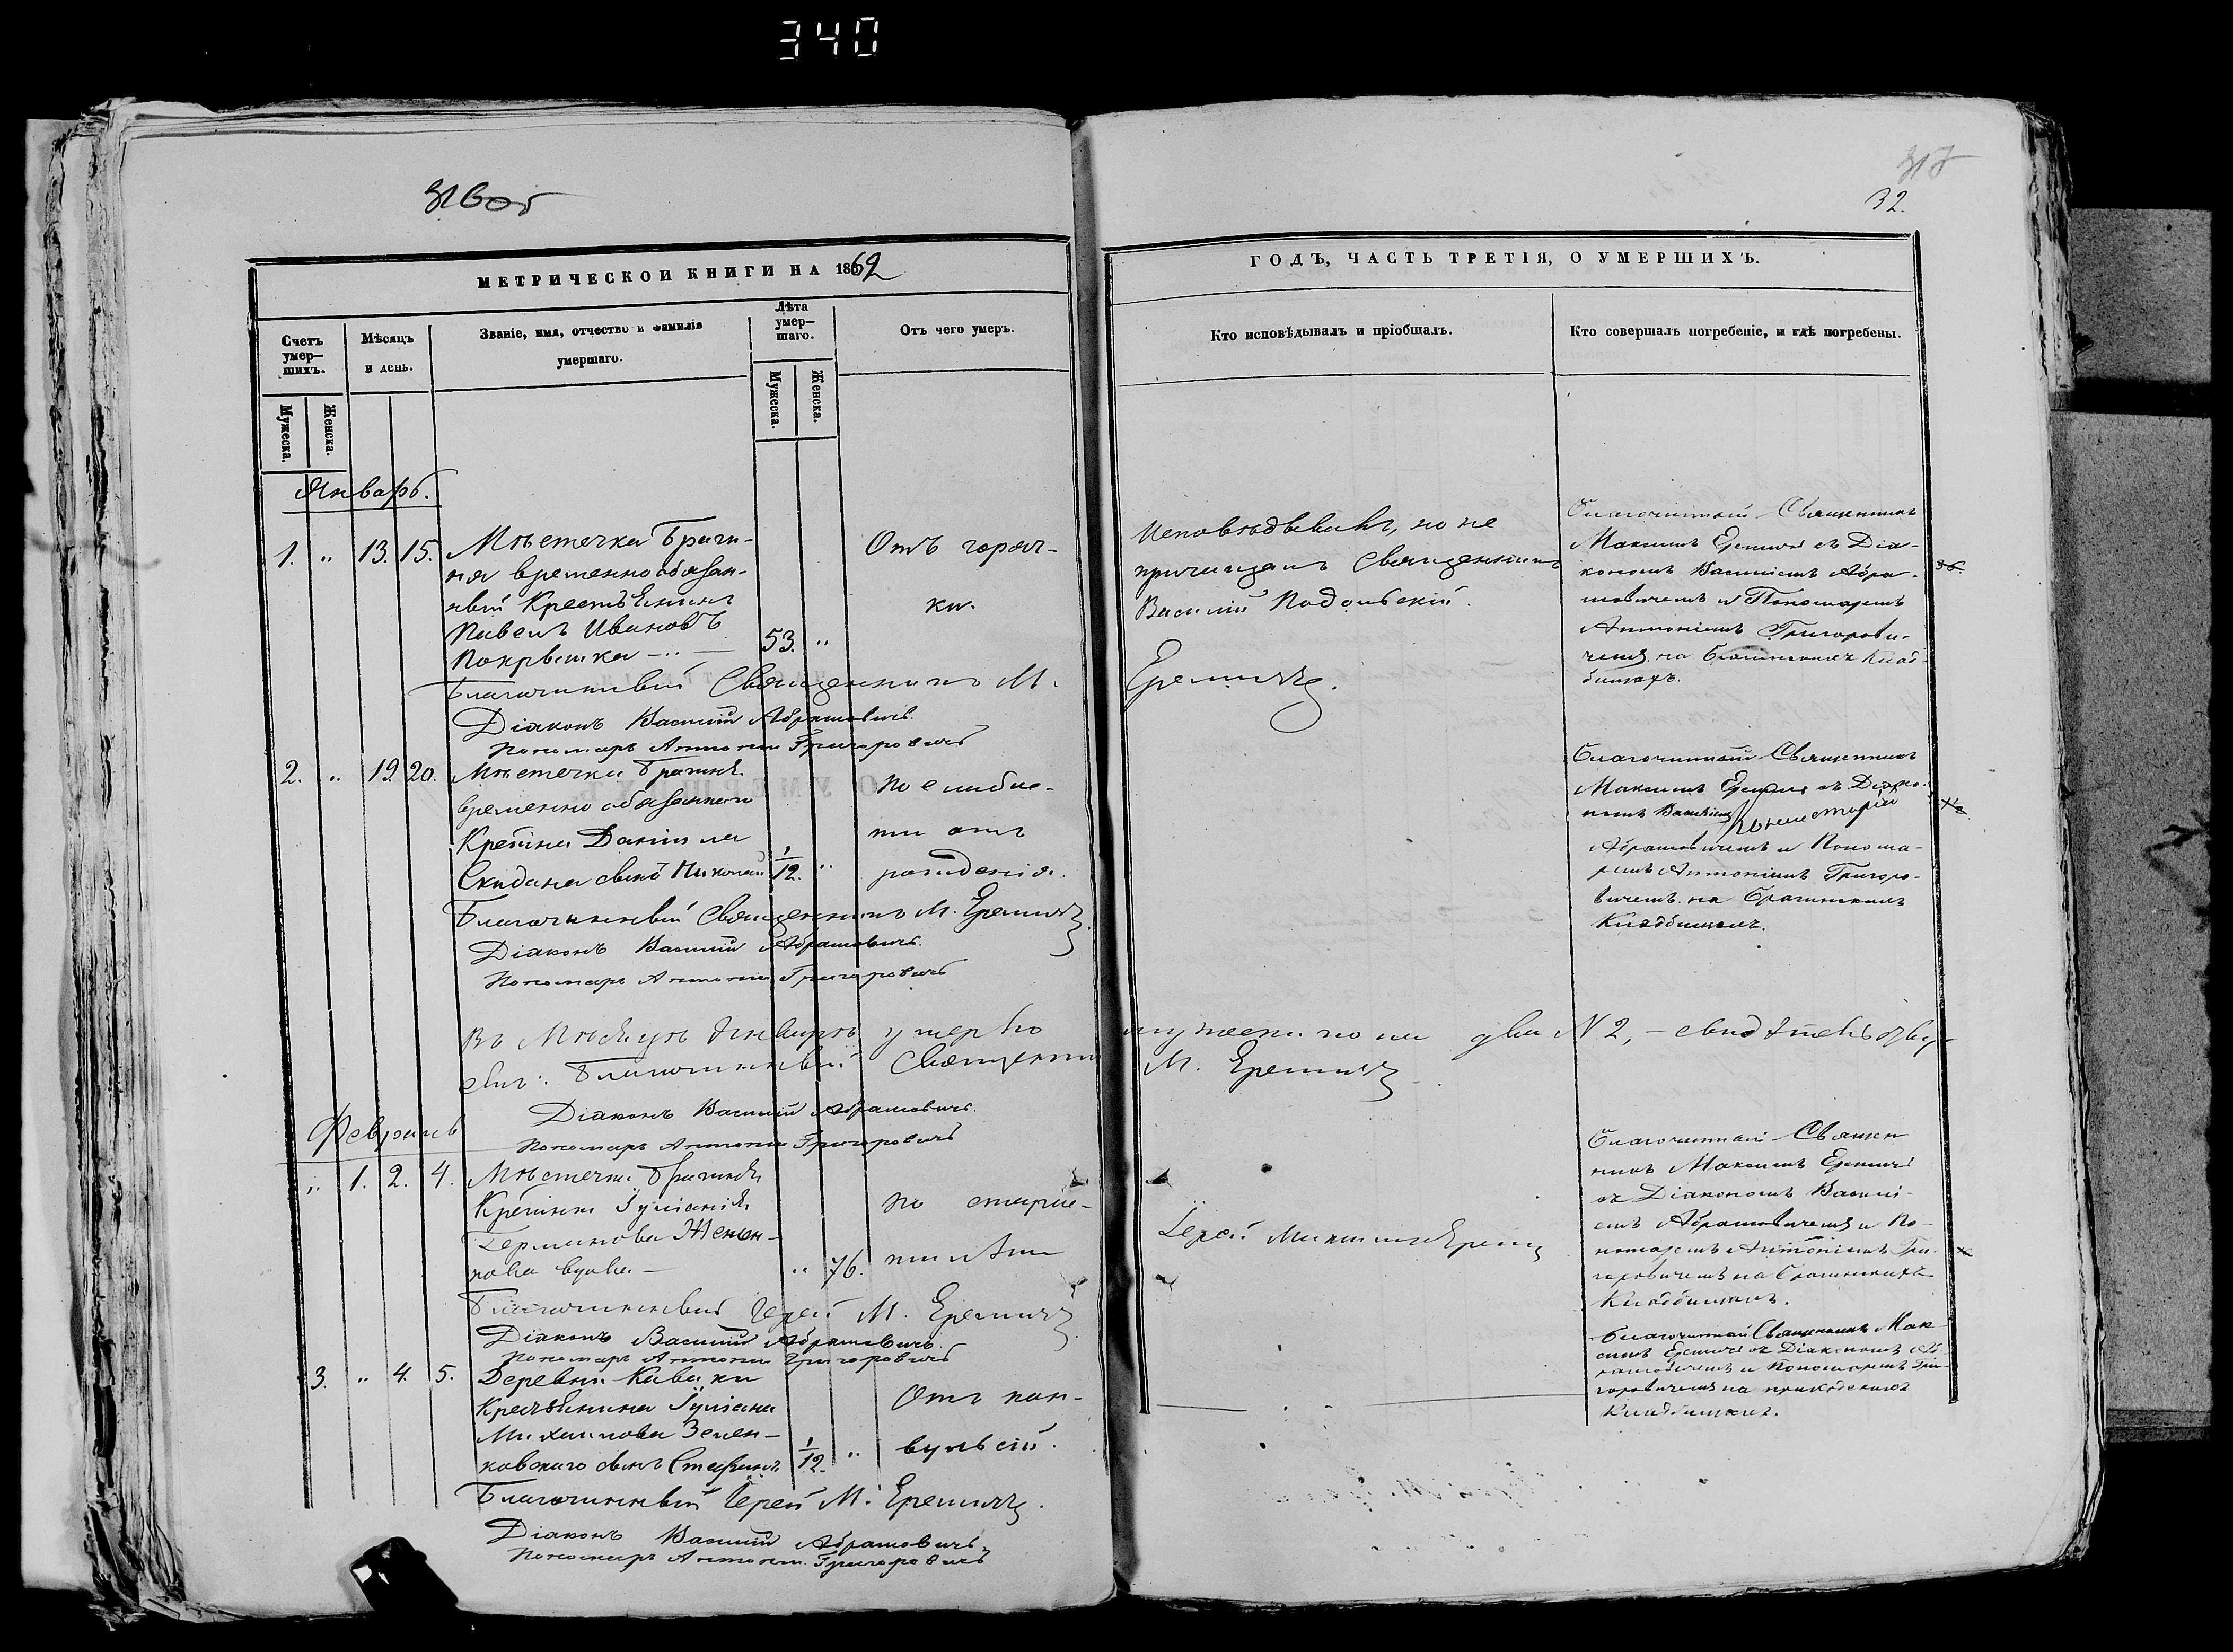 340
316об
317
32.
МЕТРИЧЕСКОЙ КНИГИ НА 1862
ГОДЪ, ЧАСТЬ ТРЕТІЯ, О УМЕРШИХЪ.
Счетъ умер-
шихъ.
Мужеска.
Женска.
Мѣсяцъ
и день.
Званіе, имя, отчество и фамилія
умершаго.
Лѣта
умер-
шаго.
Мужеска.
Женска.
Отъ чего умеръ.
Кто исповѣдывалъ и пріобщалъ.
Кто совершалъ погребеніе, и гдѣ погребены.
Январь.
1. „ 13. 15.
Мѣстечка Браги-
ня временнообязан-
ный Крестьянинъ
Павелъ Ивановъ
Покрышка
53. „
Отъ горяч-
ки.
Исповѣдывалъ, но не
причащалъ Священникъ
Василій Подольскій.
Благочинный Священникъ
Максимъ Еремичъ съ Діа-
кономъ Василіемъ Абра-
мовичемъ и Пономаремъ
Антоніемъ Григорови-
чемъ на Брагинскихъ Клад-
бищахъ.
Благочинный Священникъ М. Еремичъ.
Діаконъ Василій Абрамовичъ.
Пономарь Антоній Григоровичъ
2. „ 19 20.
Мѣстечка Брагиня
временно обязаннаго
Кретіна Даніила
Скидана сынъ Николай
1/12. „
По слабос-
ти отъ
рожденія.
Благочинный Священникъ
Максимъ Еремичъ съ Діако-
номъ Василіемъ
Абрамовичемъ и Понома-
ремъ Антоніемъ Григоро-
вичемъ на Брагинскомъ
Кладбищахъ.
Благочинный Священникъ М. Еремичъ.
Діаконъ Василій Абрамовичъ.
Пономарь Антоній Григоровичъ
Въ Мѣсяцѣ Январѣ умерло мужеска пола два N 2, – свидѣтельству-
емъ: Благочинный Священникъ М. Еремичъ.
Діаконъ Василій Абрамовичъ.
Пономарь Антоній Григоровичъ
Февраль
„ 1. 2. 4.
Мѣстечка Брагиня
Іуліанія
вдова –
„ 76.
По старос-
ти лѣтъ
Іерей Максимъ Еремичъ
Благочинный Священ
никъ Максимъ Еремичъ
съ Діакономъ Василі-
емъ Абрамовичемъ и По-
номаремъ Антоніемъ Гри-
горовичемъ на Брагинскихъ
Кладбищахъ.
Благочинный Іерей М. Еремичъ
Діаконъ Василій Абрамовичъ
Пономарь Антоній Григоровичъ
3. „ 4. 5.
Деревни
Крестьянина Іуліана
Михаилова Зелен-
ковскаго сынъ Стефанъ
1/12. „
Отъ кон-
вульсій.
Благочинный Священникъ Мак-
симъ Еремичъ съ Діакономъ Аб-
рамовичемъ и Пономаремъ Гри-
горовичемъ на приходскихъ
Кладбищахъ.
Благочинный Іерей М. Еремичъ.
Діаконъ Василій Абрамовичъ.
Пономарь Антоній Григоровичъ